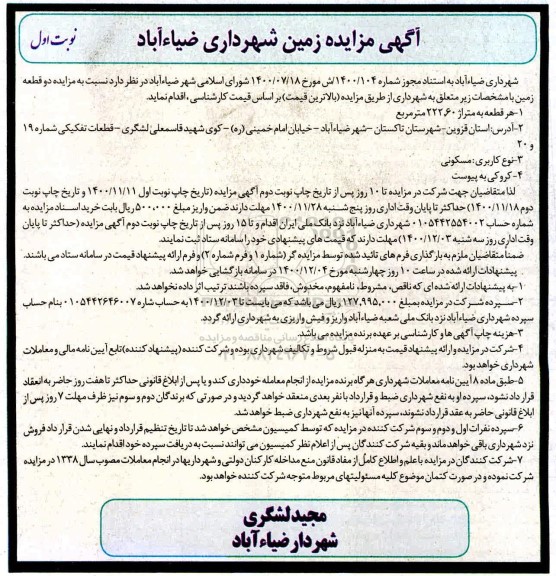 آگهی مزایده زمین شهرداری ضیاءآباد
نوبت اول
شهرداری ضیاءآباد به استناد مجوز شماره ۱۴۰۰/۱۰۴/ش مورخ ۱۴۰۰/۰۷/۱۸ شورای اسلامی شهر ضیاءآباد در نظر دارد نسبت به مزایده دو قطعه
زمین با مشخصات زیر متعلق به شهرداری از طریق مزایده (بالاترین قیمت) بر اساس قیمت کارشناسی، اقدام نماید.
۱-هر قطعه به متراژ ۲۲۳.۶۰ مترمربع
۲-آدرس: استان قزوین-شهرستان تاکستان -شهر ضیاءآباد - خیابان امام خمینی (ره) - کوی شهید قاسمعلی لشگری - قطعات تفکیکی شماره ۱۹
و ۲۰
۳-نوع کاربری: مسکونی
۴-کروکی به پیوست
لذا متقاضیان جهت شرکت در مزایده تا ۱۰ روز پس از تاریخ چاپ نوبت دوم آگهی مزایده (تاریخ چاپ نوبت اول ۱۴۰۰/۱۱/۱۱ و تاریخ چاپ نوبت
دوم ۱۴۰۰/۱۱/۱۸) حداکثر تا پایان وقت اداری روز پنج شنبه ۱۴۰۰/۱۱/۲۸ مهلت دارند ضمن واریز مبلغ ۵۰۰.۰۰۰ ریال بابت خرید اسناد مزایده به
شماره حساب ۰۱۰۵۴۴۲۵۵۴۰۰۲ شهرداری ضیاءآباد نزد بانک ملی ایران اقدام و تا ۱۵ روز پس از تاریخ چاپ نوبت دوم آگهی مزایده (حداکثر تا پایان
وقت اداری روز سه شنبه ۱۴۰۰/۱۲/۰۳) مهلت دارند که قیمت های پیشنهادی خود را سامانه ستاد ثبت نمایند.
ضمناً متقاضیان ملزم به بارگذاری فرم های تائید شده توسط مزایده گر (شماره ۱ و فرم شماره ۲) و فرم ارائه پیشنهاد قیمت در سامانه ستاد می باشند.
پیشنهادات ارائه شده در ساعت ۱۰ روز چهارشنبه مورخ ۱۴۰۰/۱۲/۰۴ در سامانه بازگشایی خواهد شد.
۱-به پیشنهادات ارائه شده ای که ناقص، مشروط، نامفهوم، مخدوش، فاقد سپرده باشند ترتیب اثر داده نخواهد شد.
۲-سپرده شرکت در مزایده بمبلغ ۱۲۷,۹۹۵,۰۰۰ ریال می باشد که می بایست تا ۱۴۰۰/۱۲/۰۳ به حساب شماره ۰۱۰۵۴۴۲۶۴۶۰۰۷ بنام حساب
سپرده شهرداری ضیاءآباد نزد بانک ملی شعبه ضیاءآباد واریز و فیش واریزی به شهرداری ارائه گردد.
۳-هزینه چاپ آگهی ها و کارشناسی بر عهده برنده مزایده می باشد.
۴-شرکت در مزایده و ارائه پیشنهاد قیمت به منزله قبول شروط و تکالیف شهرداری بوده و شرکت کننده (پیشنهاد کننده) تابع آیین نامه مالی و معاملات
شهرداری خواهد بود.
۵-طبق ماده ۸ آیین نامه معاملات شهرداری هرگاه برنده مزایده از انجام معامله خودداری کند و یا پس از ابلاغ قانونی حداکثر تا هفت روز حاضر به انعقاد
قرارداد نشود، سپرده او به نفع شهرداری ضبط و قرارداد با نفر بعدی منعقد خواهد گردید و در صورتی که برندگان دوم و سوم نیز ظرف مهلت ۷ روز پس از
ابلاغ قانونی حاضر به عقد قرارداد نشوند، سپرده آنها نیز به نفع شهرداری ضبط خواهد شد.
۶-سپرده نفرات اول و دوم و سوم شرکت کننده در مزایده که توسط کمیسیون مشخص خواهد شد تا تاریخ تنظیم قرارداد و نهایی شدن قرارداد فروش
نزد شهرداری باقی خواهد ماند و بقیه شرکت کنندگان پس از اعلام نظر کمیسیون می توانند نسبت به دریافت سپرده خود اقدام نمایند.
۷-شرکت کنندگان در مزایده با علم و اطلاع کامل از مفاد قانون منع مداخله کارکنان دولتی و شهرداریها در انجام معاملات مصوب سال ۱۳۳۸ در مزایده
شرکت نموده و در صورت کتمان موضوع کلیه مسئولیتهای مربوط متوجه شرکت کننده خواهد بود.
مجید لشگری
شهردار ضیاءآباد